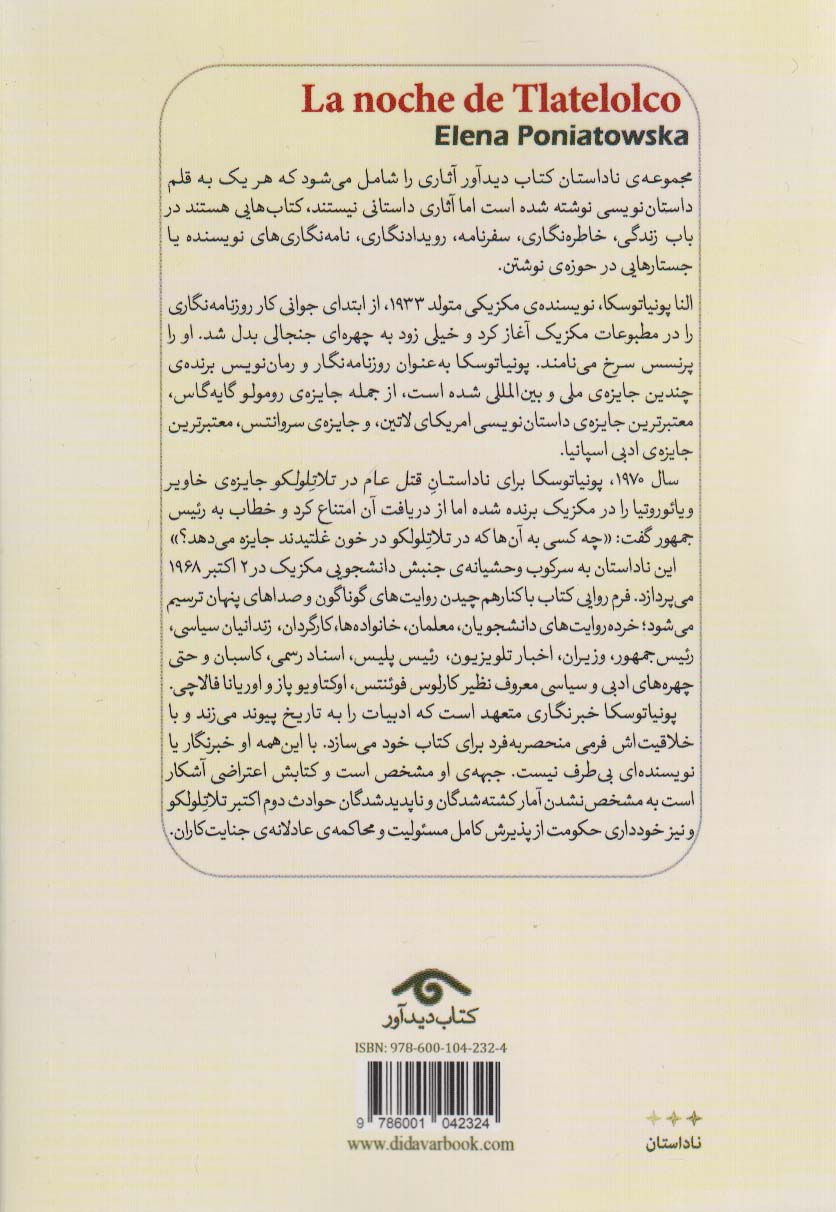 La noche de Tlatelolco
Elena Poniatowska
مجموعه‌ی ناداستان کتاب دیدآور آثاری را شامل می‌شود که هر یک به قلم
داستان‌نویسی نوشته شده است اما آثاری داستانی نیستند، کتاب‌هایی هستند در
باب زندگی، خاطره‌نگاری، سفرنامه، رویدادنگاری، نامه‌نگاری‌های نویسنده یا
جستارهایی در حوزه‌ی نوشتن.
النا پونیاتوسکا، نویسنده‌ی مکزیکی متولد ۱۹۳۳، از ابتدای جوانی کار روزنامه‌نگاری
را در مطبوعات مکزیک آغاز کرد و خیلی زود به چهره‌ای جنجالی بدل شد. او را
پرنسس سرخ می‌نامند. پونیاتوسکا به‌عنوان روزنامه‌نگار و رمان‌نویس برنده‌ی
چندین جایزه‌ی ملی و بین‌المللی شده است، از جمله جایزه‌ی رومولو گایه‌گاس،
معتبرترین جایزه‌ی داستان‌نویسی امریکای لاتین، و جایزه‌ی سروانتس، معتبرترین
جایزه‌ی ادبی اسپانیا.
سال ۱۹۷۰، پونیاتوسکا برای ناداستانِ قتل عام در تلاتِلولکو جایزه‌ی خاویر
ویائوروتیا را در مکزیک برنده شده اما از دریافت آن امتناع کرد و خطاب به رئیس
جمهور گفت: «چه کسی به آن‌ها که در تلاتِلولکو در خون غلتیدند جایزه می‌دهد؟»
این ناداستان به سرکوب وحشیانه‌ی جنبش دانشجویی مکزیک در ۲ اکتبر ۱۹۶۸
می‌پردازد. فرم روایی کتاب با کنار هم چیدن روایت‌های گوناگون و صداهای پنهان ترسیم
می‌شود؛ خرده‌روایت‌های دانشجویان، معلمان، خانواده‌ها، کارگردان، زندانیان سیاسی،
رئیس‌جمهور، وزیران، اخبار تلویزیون، رئیس پلیس، اسناد رسمی، کاسبان و حتی
چهره‌های ادبی و سیاسی معروف نظیر کارلوس فوئنتس، اوکتاویو پاز و اوریانا فالاچی.
پونیاتوسکا خبرنگاری متعهد است که ادبیات را به تاریخ پیوند می‌زند و با
خلاقیت‌اش فرمی منحصربه‌فرد برای کتاب خود می‌سازد. با این‌همه او خبرنگار یا
نویسنده‌ای بی‌طرف نیست. جبهه‌ی او مشخص است و کتابش اعتراضی آشکار
است به مشخص‌نشدن آمار کشته‌شدگان و ناپدیدشدگان حوادث دوم اکتبر تلاتِلولکو
و نیز خودداری حکومت از پذیرش کامل مسئولیت و محاکمه‌ی عادلانه‌ی جنایت‌کاران.
کتاب دیدآور
ISBN: 978-600-104-232-4
9 786001 042324
www.didavarbook.com
ناداستان